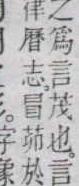 之爲言茂也。言
律曆志。冒茆於